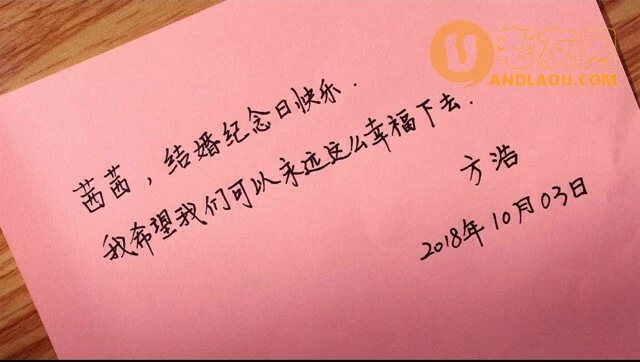 ANDLAOU.COM
茜茜，结婚纪念日快乐.
我希望我们可以永远这么幸福下去.
方浩
2018年10月03日